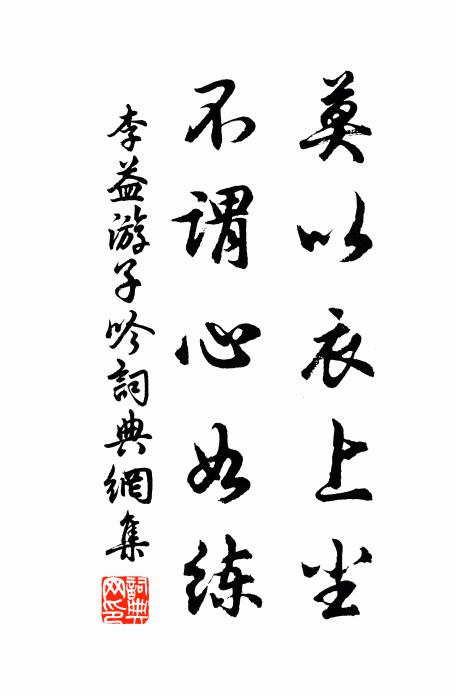 莫以衣上尘
不谓心如练
李益游子吟詞典網集
詞典网印